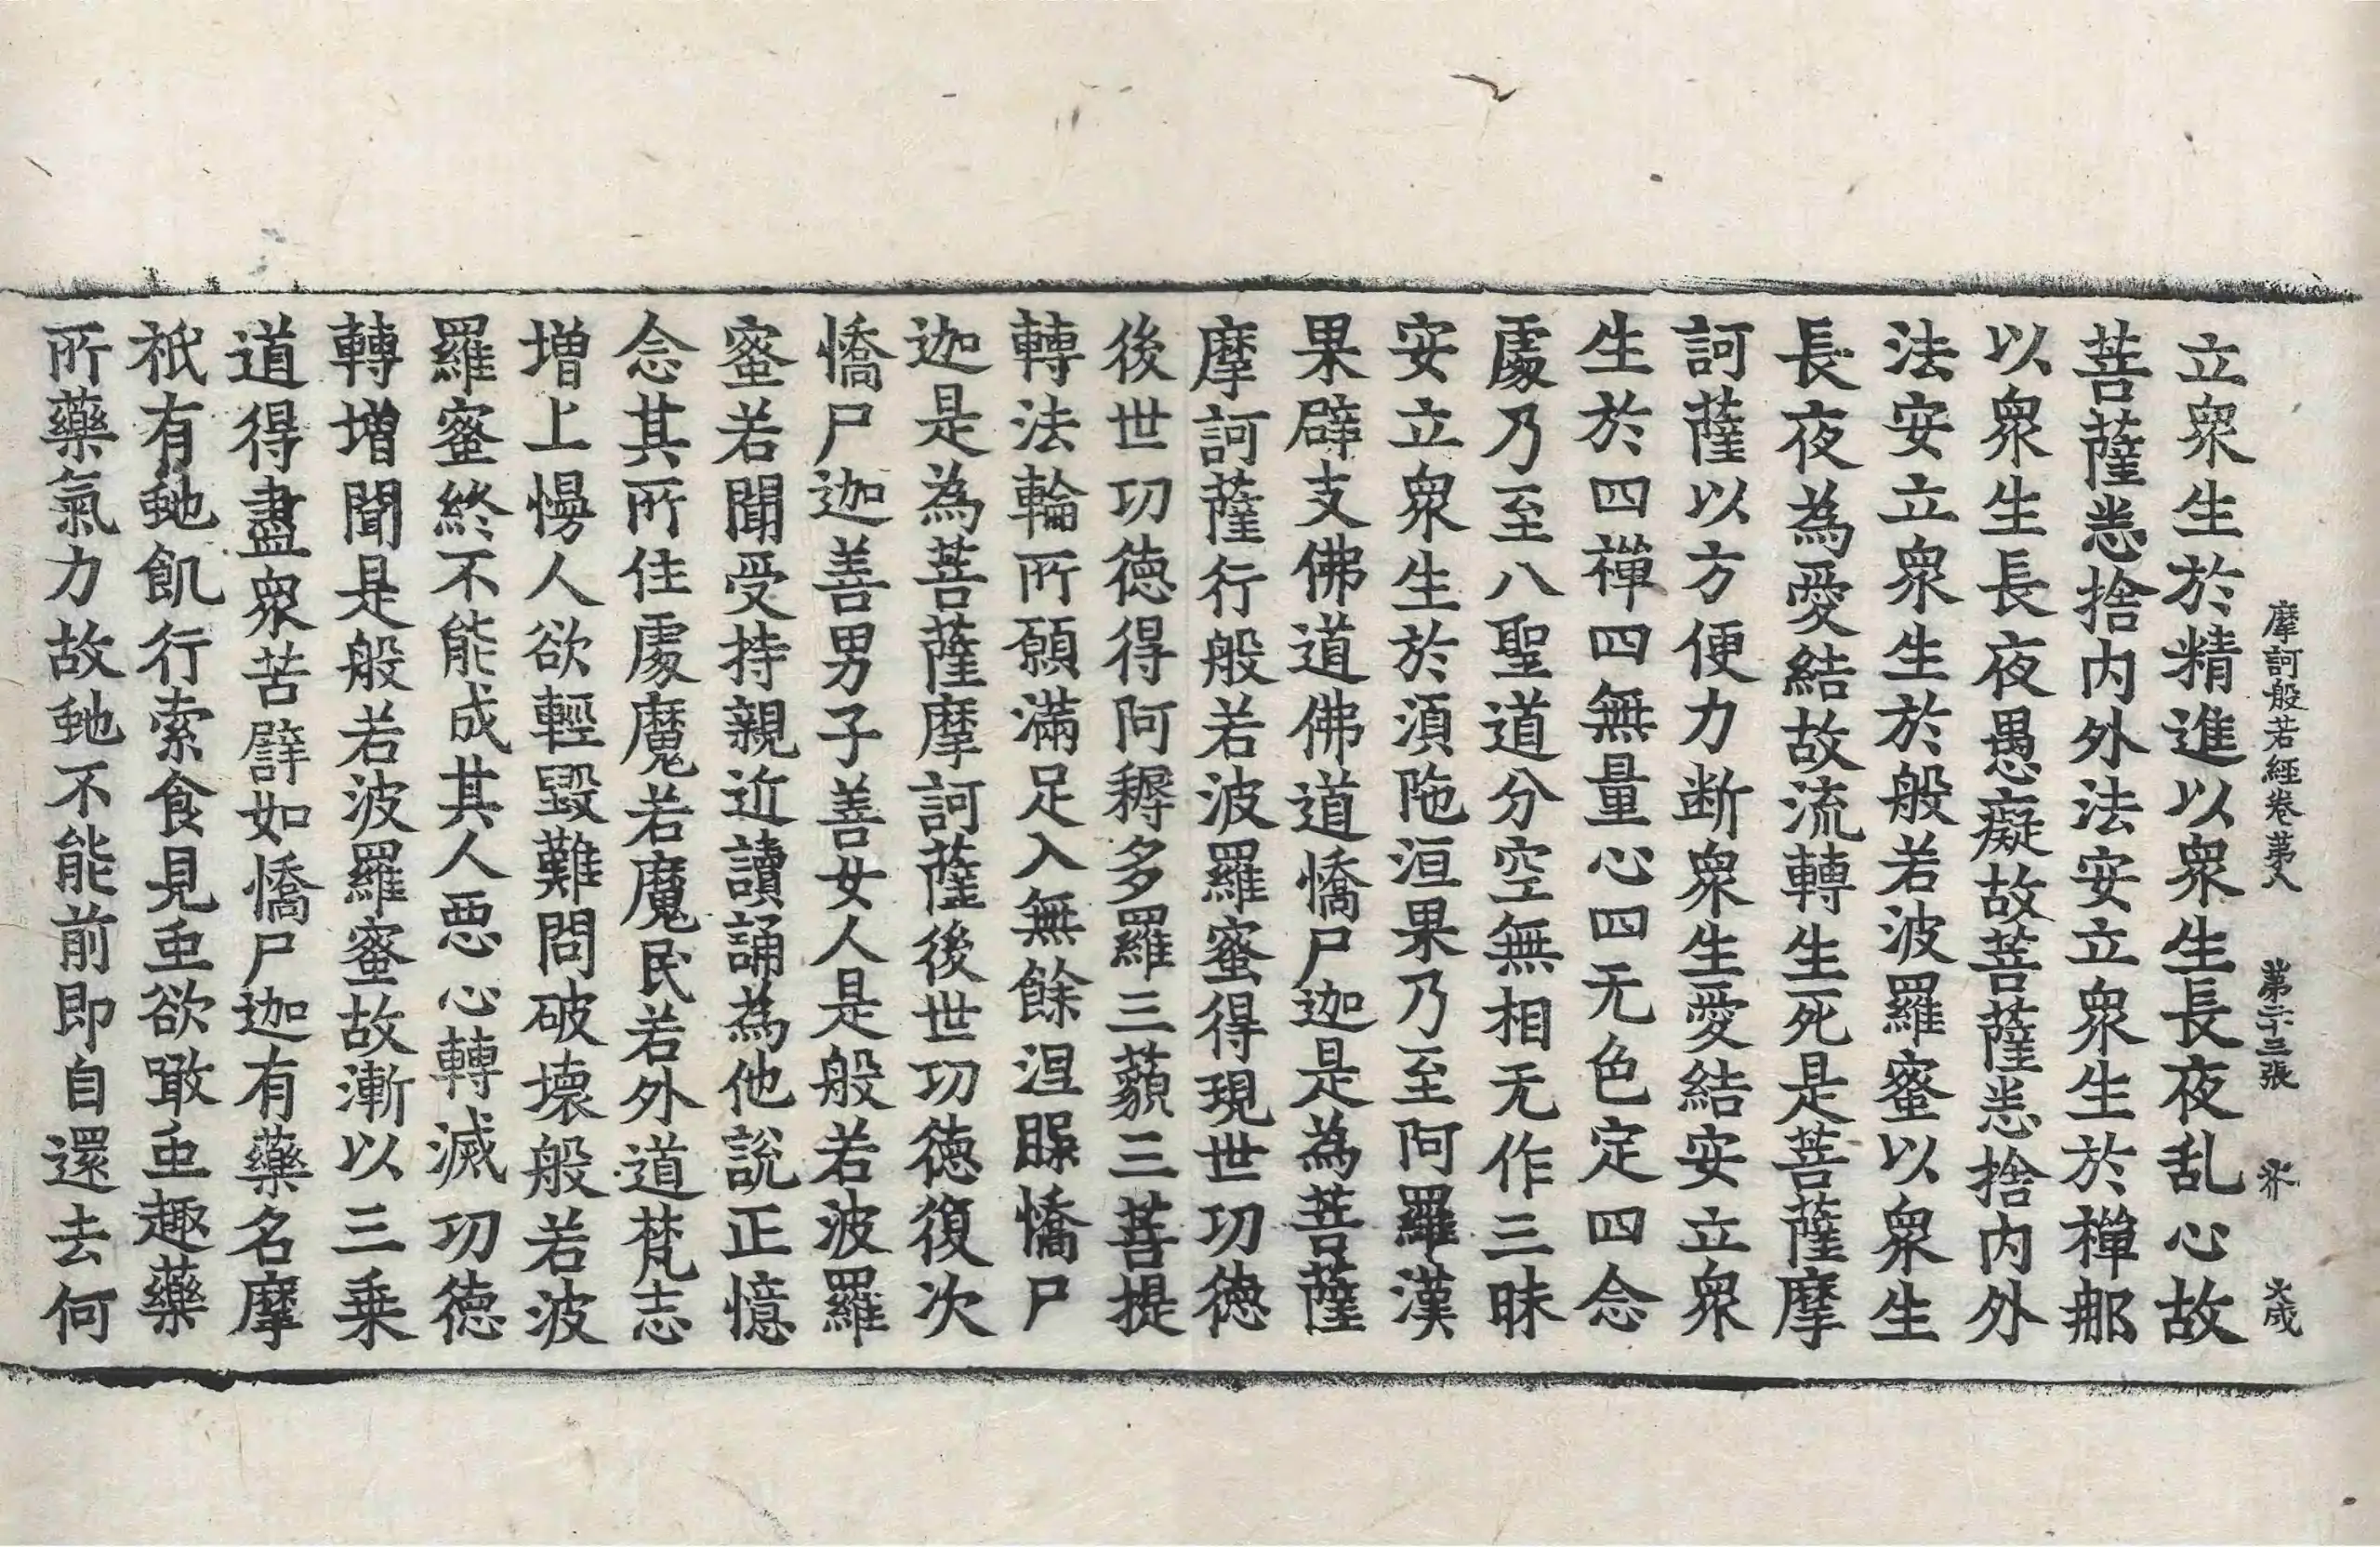 摩訶般若經卷第八 第二十三張 芥 大成
立衆生於精進以衆生長夜乱心故
菩薩悉捨内外法安立衆生於禪那
以衆生長夜愚癡故菩薩悉捨内外
法安立衆生於般若波羅蜜以衆生
長夜為愛結故流轉生死是菩薩摩
訶薩以方便力断衆生愛結安立衆
生於四禪四無量心四无色定四念
處乃至八聖道分空無相无作三昧
安立衆生於須陁洹果乃至阿羅漢
果辟支佛道佛道憍尸迦是為菩薩
摩訶薩行般若波羅蜜得現世功德
後世功德得阿耨多羅三藐三菩提
轉法輪所願滿足入無餘涅槃憍尸
迦是為菩薩摩訶薩後世功德復次
憍尸迦善男子善女人是般若波羅
蜜若聞受持親近讀誦為他說正憶
念其所住處魔若魔民若外道梵志
増上慢人欲輕毀難問破壊般若波
羅蜜終不能成其人惡心轉滅功德
轉増聞是般若波羅蜜故漸以三乗
道得盡衆苦譬如憍尸迦有藥名摩
祇有虵飢行索食見虫欲噉虫趣藥
所藥氣力故虵不能前即自還去何